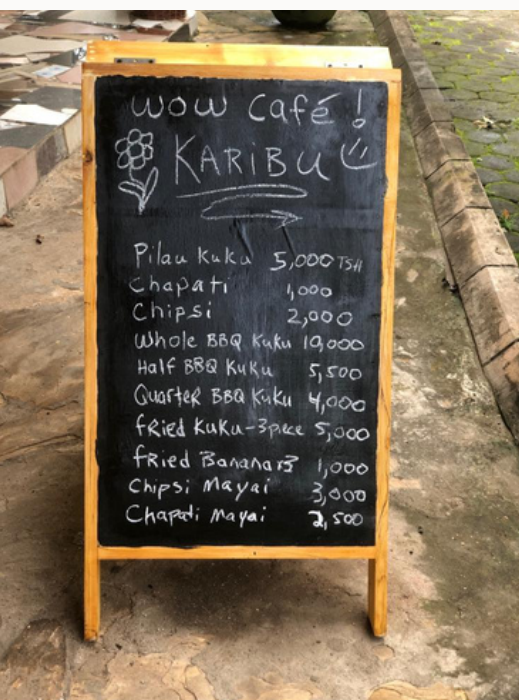 WOW Café!
KARIBU
Pilau Kuku 5,000 TSH
Chapati 1,000
Chipsi 2,000
Whole BBQ Kuku 10,000
Half BBQ Kuku 5,500
Quarter BBQ Kuku 4,000
fRied KuKu-3piece 5,000
fRied Bananas 3 1,000
Chipsi Mayai 3,000
Chapati Mayai 2,500